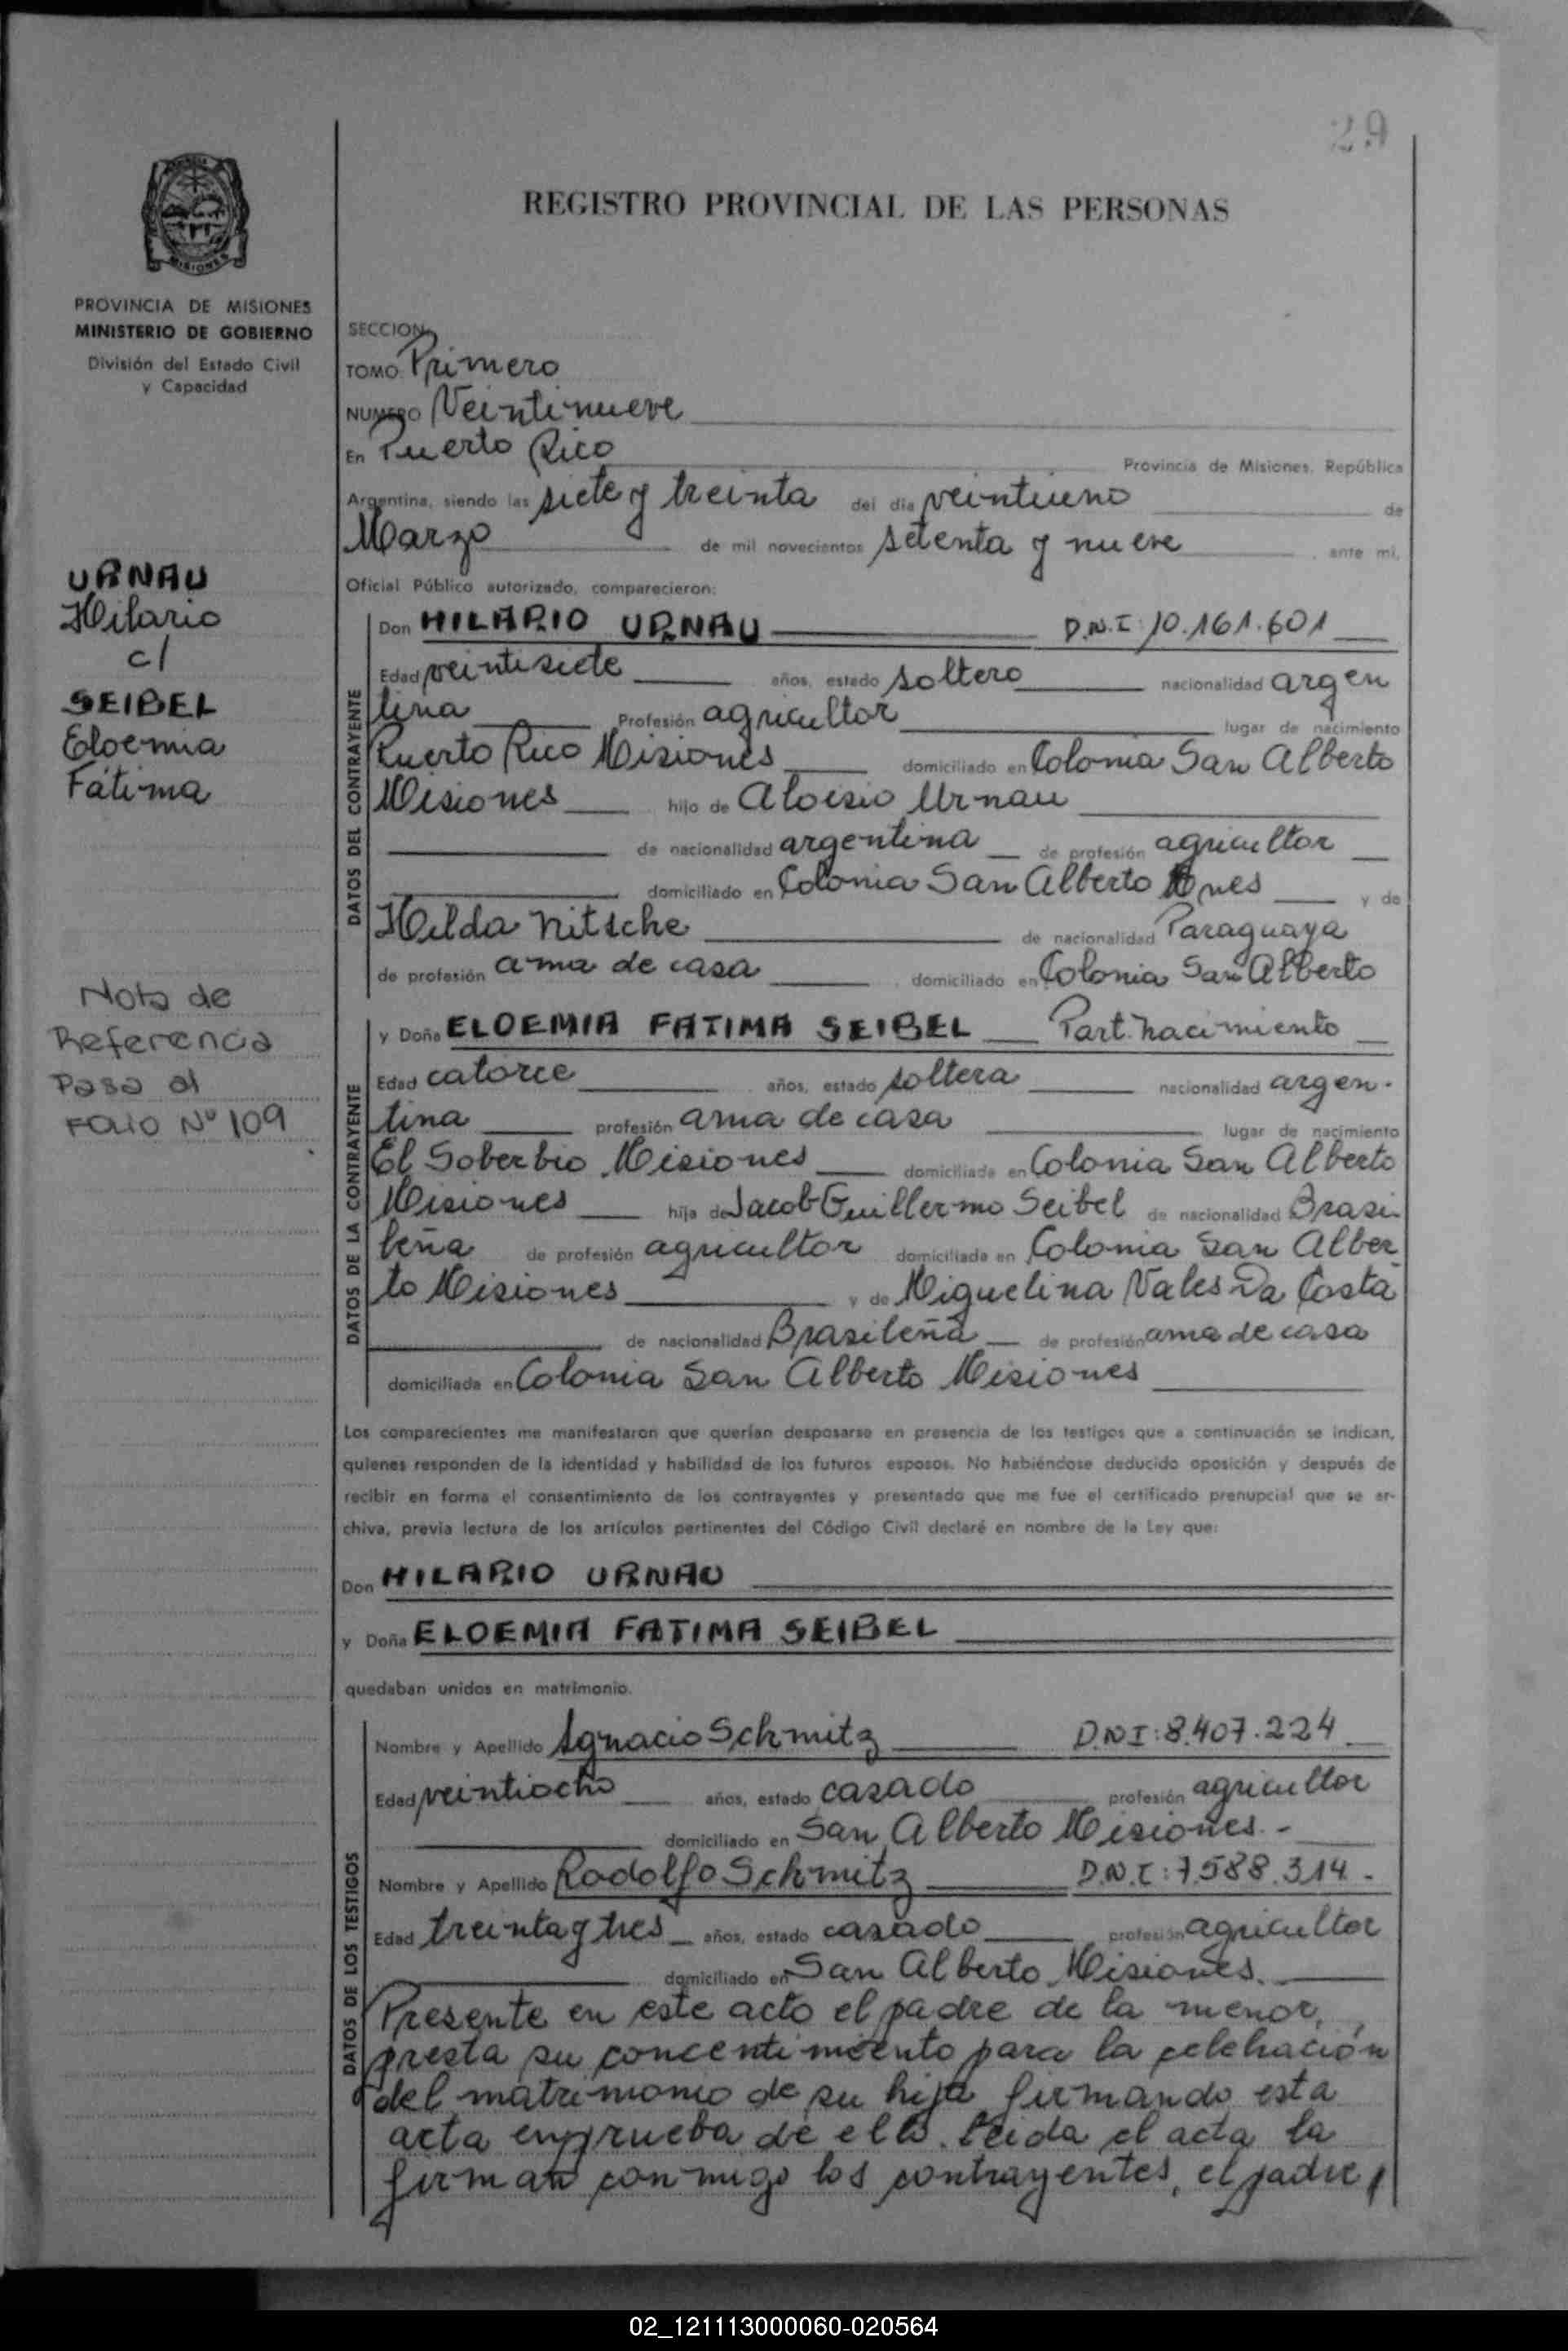 29
REGISTRO PROVINCIAL DE LAS PERSONAS
MISIONES
PROVINCIA DE MISIONES
MINISTERIO DE GOBIERNO
División del Estado Civil
y Capacidad
SECCION
TOMO Primero
NUMERO Veintinueve
En Puerto Rico Provincia de Misiones, República
Argentina, siendo las siete y treinta del día veintiuno de
Marzo de mil novecientos setenta y nueve, ante mi,
Oficial Público autorizado, comparecieron:
URNAU
Hilario
c/
SEIBEL
Eloemia
Fátima
Nota de
Referencia
Pasa al
FOLIO Nº 109
DATOS DEL CONTRAYENTE
Don HILARIO URNAU D.N.I: 10.161.601
Edad veintisiete años, estado soltero nacionalidad argen
tina Profesión agricultor lugar de nacimiento
Puerto Rico Misiones domiciliado en Colonia San Alberto
Misiones hijo de Aloisio Urnau
de nacionalidad argentina de profesión agricultor
domiciliado en Colonia San Alberto Mnes y de
Hilda Nitsche de nacionalidad Paraguaya
de profesión ama de casa domiciliado en Colonia San Alberto
DATOS DE LA CONTRAYENTE
y Doña ELOEMIA FATIMA SEIBEL Part. nacimiento
Edad catorce años, estado soltera nacionalidad argen-
tina profesión ama de casa lugar de nacimiento
El Soberbio Misiones domiciliada en Colonia San Alberto
Misiones hija de Jacob Guillermo Seibel de nacionalidad Brasi-
leña de profesión agricultor domiciliada en Colonia San Alber
to Misiones y de Miguelina Vales Da Costa
de nacionalidad Brasileña de profesión ama de casa
domiciliada en Colonia San Alberto Misiones
Los comparecientes me manifestaron que querían desposarse en presencia de los testigos que a continuación se indican,
quienes responden de la identidad y habilidad de los futuros esposos. No habiéndose deducido oposición y después de
recibir en forma el consentimiento de los contrayentes y presentado que me fue el certificado prenupcial que se ar-
chiva, previa lectura de los artículos pertinentes del Código Civil declaré en nombre de la Ley que:
Don HILARIO URNAU
y Doña ELOEMIA FATIMA SEIBEL
quedaban unidos en matrimonio.
DATOS DE LOS TESTIGOS
Nombre y Apellido Ignacio Schmitz D.N.I: 8.407.224
Edad veintiocho años, estado casado profesión agricultor
domiciliado en San Alberto Misiones.-
Nombre y Apellido Rodolfo Schmitz D.N.I: 7.588.314.-
Edad treinta y tres años, estado casado profesión agricultor
domiciliado en San Alberto Misiones.
Presente en este acto el padre de la menor,
presta su concentimiento para la celebración
del matrimonio de su hija firmando esta
acta en prueba de ello. Leida el acta la
firman conmigo los contrayentes, el padre,
02_121113000060-020564